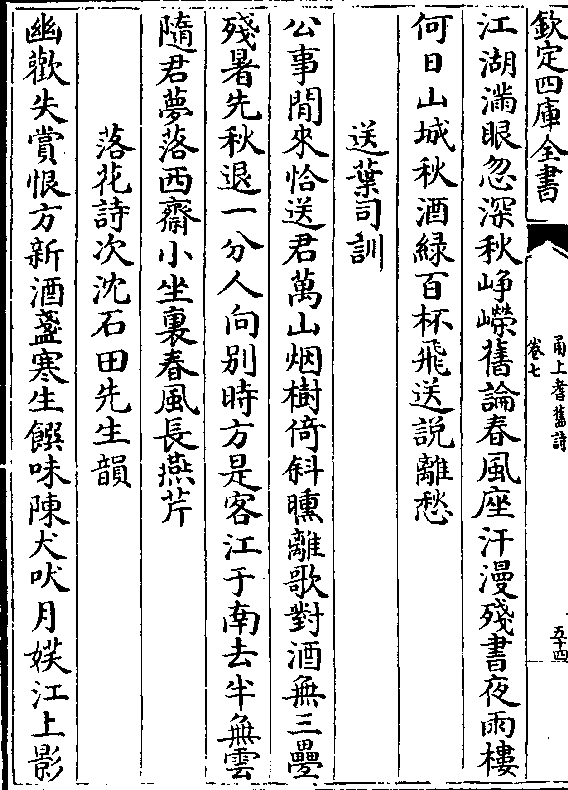 欽定四庫全書
甬上耆舊詩
卷七
五十四
江湖滿眼忽深秋崢嶸舊論春風座汗漫殘書夜雨樓
何日山城秋酒緑百杯飛送說離愁
送葉司訓
公事閒來恰送君萬山烟樹倚斜曛離歌對酒無三疊
殘暑先秋退一分人向别時方是客江于南去半無雲
隨君夢落西齋小坐裏春風長燕芹
落花詩次沈石田先生韻
幽歡失賞恨方新酒盞寒生饌味陳犬吠月媄江上影